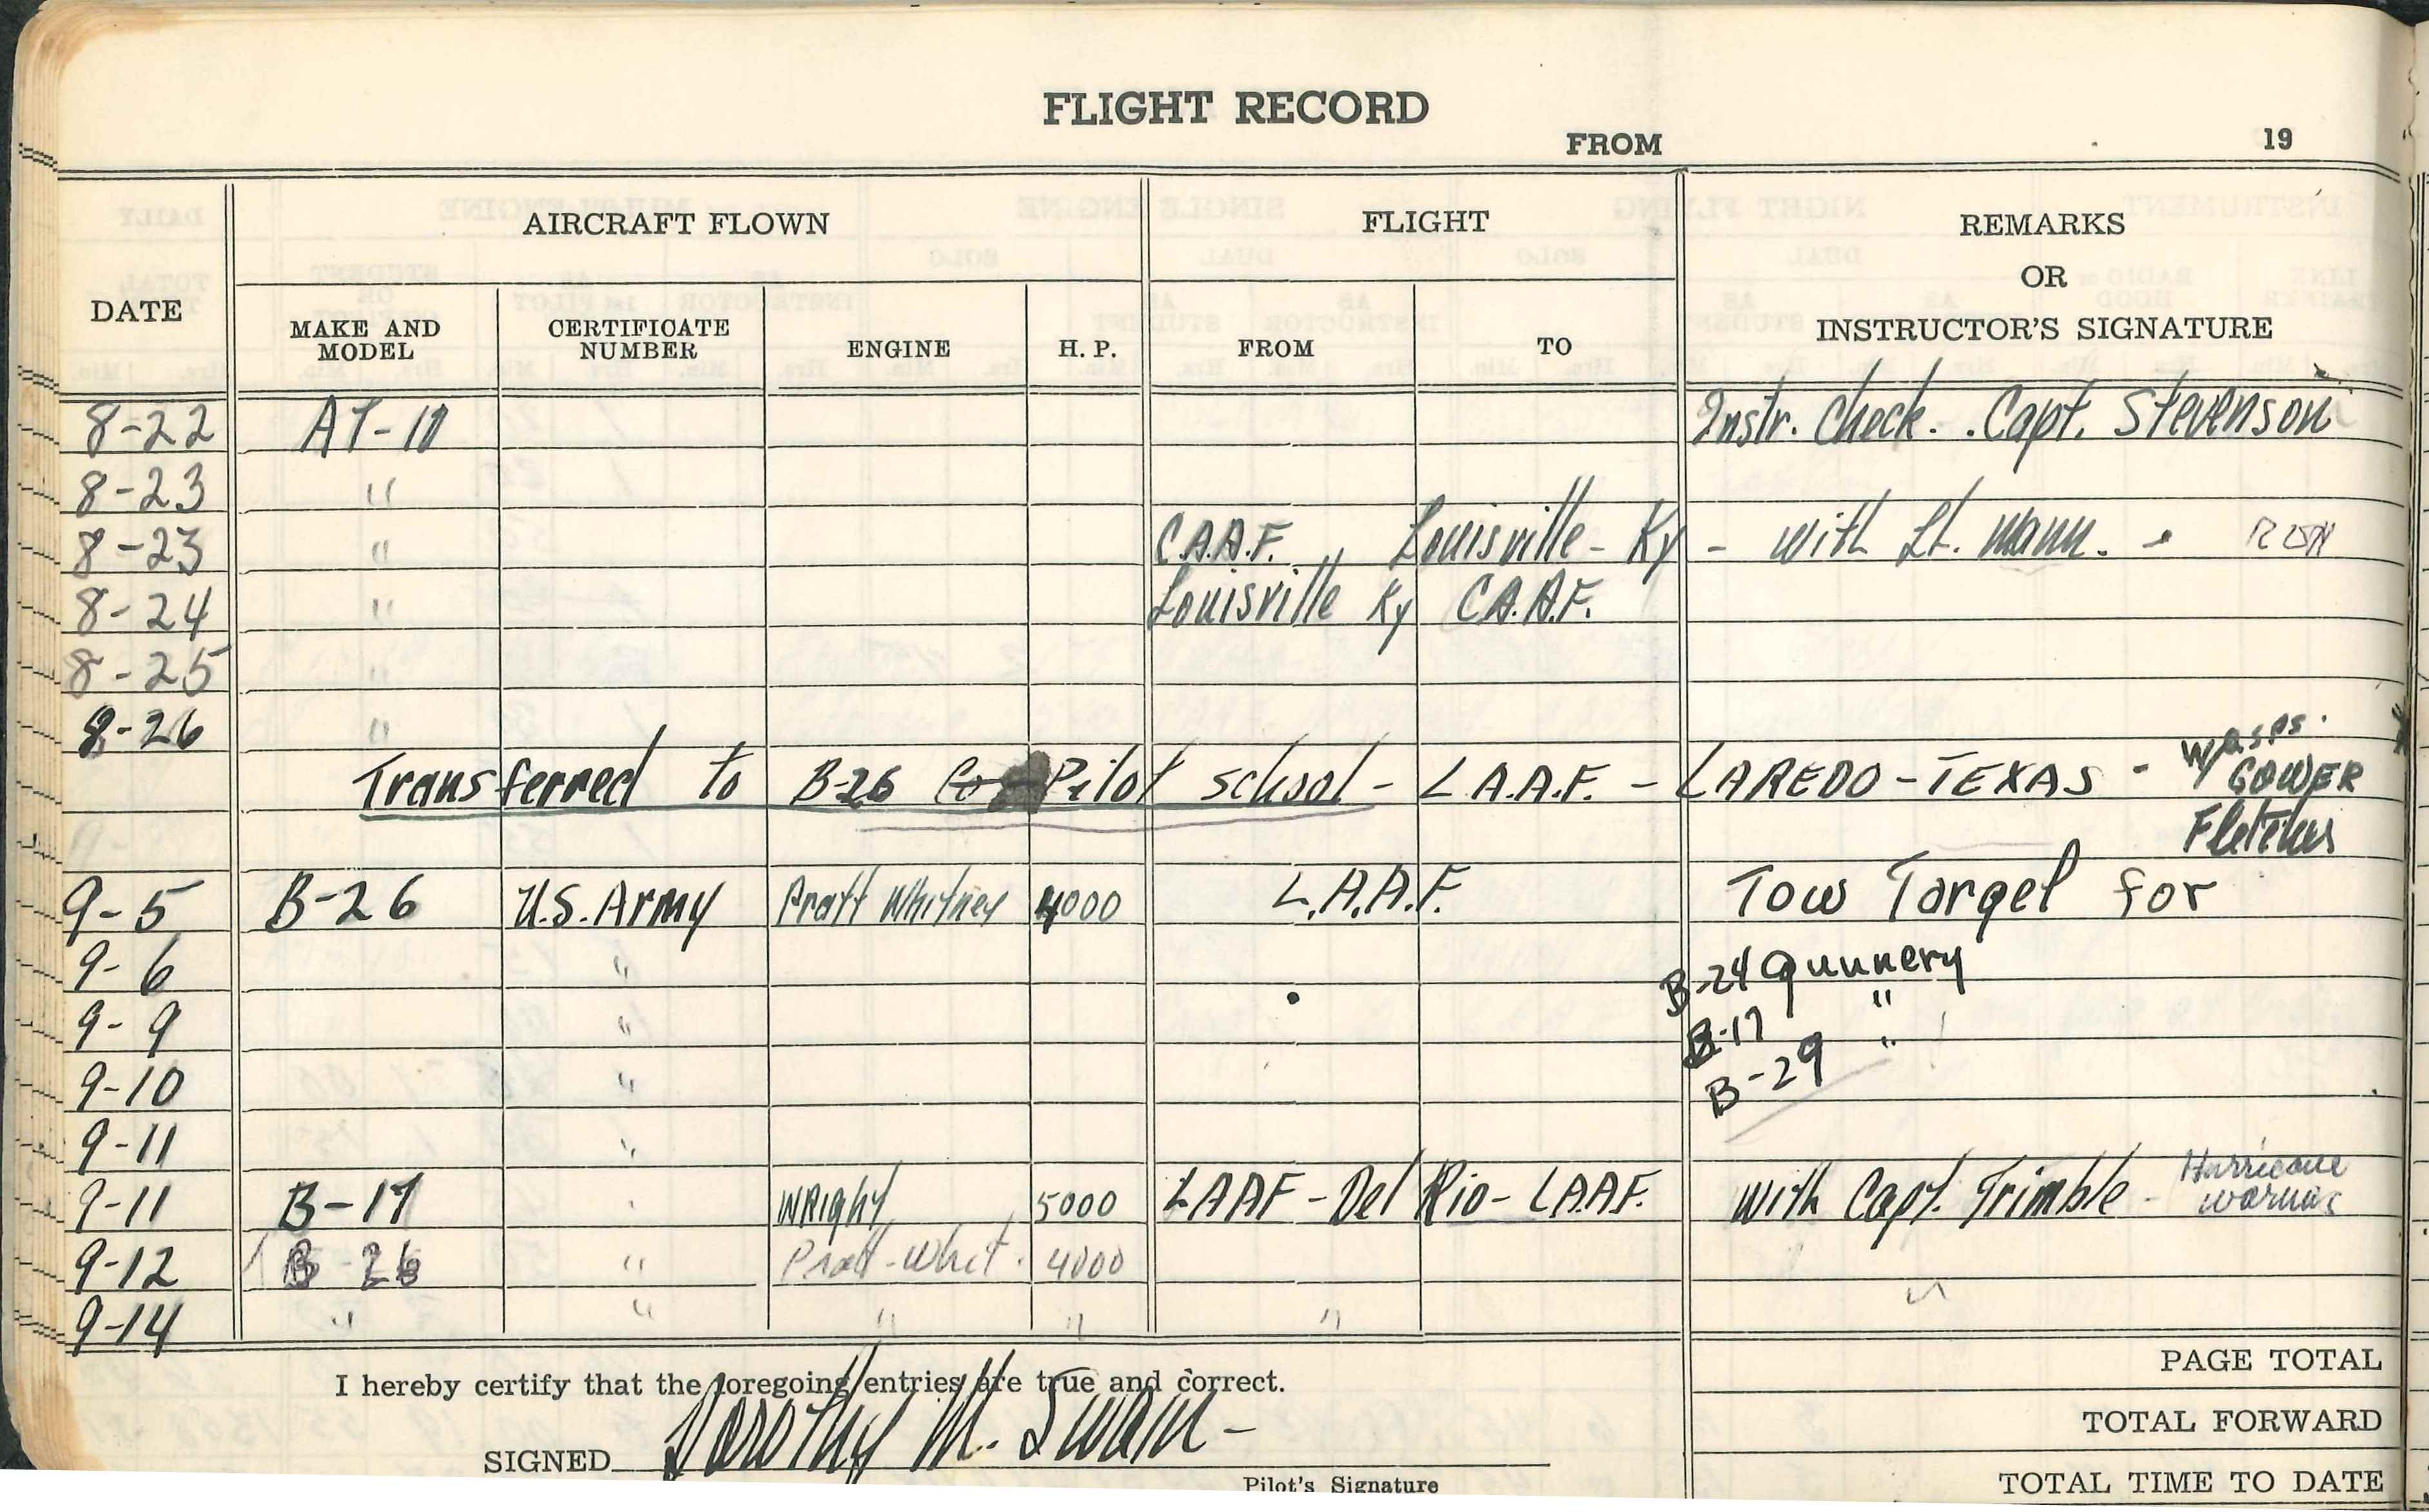 FLIGHT RECORD
FROM 19
DATE AIRCRAFT FLOWN FLIGHT REMARKS OR INSTRUCTOR'S SIGNATURE
MAKE AND MODEL CERTIFICATE NUMBER ENGINE H. P. FROM TO
8-22 AT-10 Instr. Check. Capt. Stevenson
8-23 "
8-23 " C.A.A.F. Louisville - Ky - with Lt. Mann. - RON
8-24 " Louisville Ky C.A.A.F.
8-25 "
8-26 "
Transferred to B-26 Pilot school - L.A.A.F. - LAREDO - TEXAS - W/asps.
GOWER
Fletcher
9-5 B-26 U.S. Army Pratt Whitney 4000 L.A.A.F. Tow Target for
9-6 " B-24 Gunnery
9-9 " B-17 "
9-10 " B-29 "
9-11 "
9-11 B-17 " Wright 5000 LAAF - Del Rio - LAAF. with Capt. Trimble - Hurricane warning
9-12 B-26 " Pratt-Whit. 4000
9-14 " " " " "
I hereby certify that the foregoing entries are true and correct.
SIGNED Dorothy M. Swain -
Pilot's Signature
PAGE TOTAL
TOTAL FORWARD
TOTAL TIME TO DATE